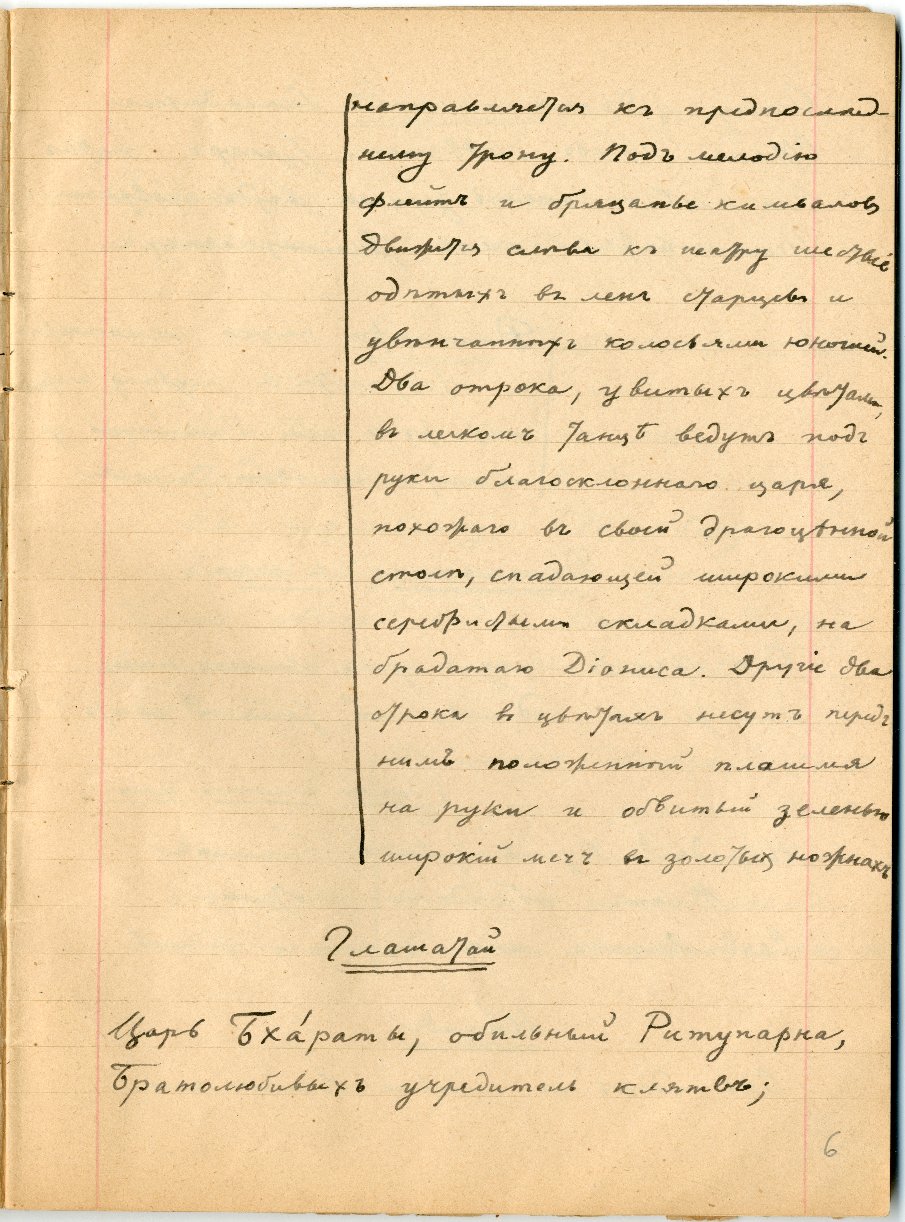 направляется къ предпослѣд-
нему трону. Подъ мелодію
флейтъ и бряцанье кимваловъ
движется слѣва къ центру шествіе
одѣтыхъ въ ленъ старцевъ и
увѣнчанныхъ колосьями юношей.
Два отрока, увитыхъ цвѣтами,
въ легкомъ танцѣ ведутъ подъ
руки благосклоннаго царя,
похожаго въ своей драгоцѣнной
столѣ, спадающей широкими
серебристыми складками, на
брадатаго Діониса. Другіе два
отрока въ цвѣтахъ несутъ передъ
нимъ положенный плашмя
на руки и обвитый зеленью
широкій мечъ въ золотыхъ ножнахъ
Глашатай
Царь Бха́раты, обильный Ритупарна,
Братолюбивыхъ учредитель клятвъ;
6